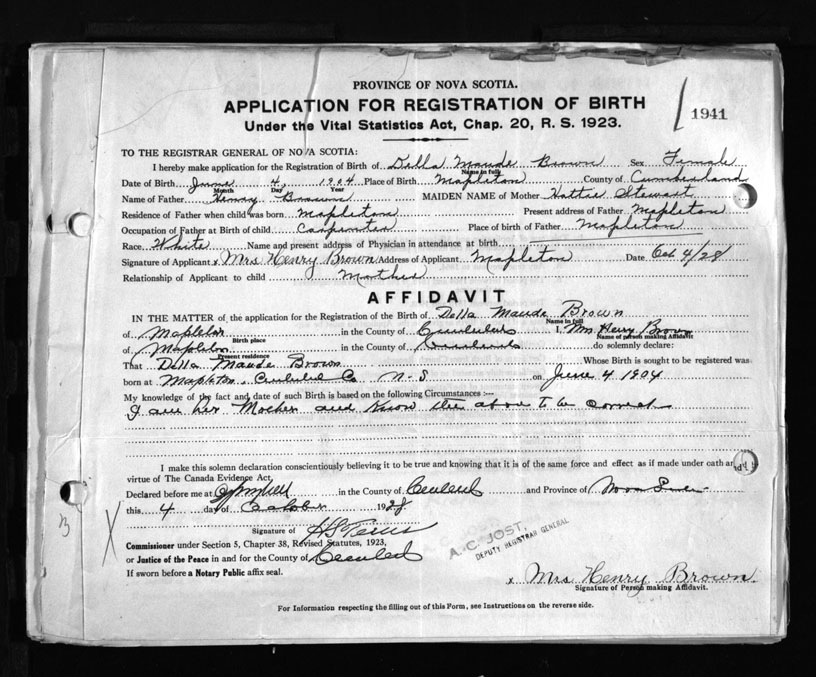 PROVINCE OF NOVA SCOTIA.
APPLICATION FOR REGISTRATION OF BIRTH
1941
Under the Vital Statistics Act, Chap. 20, R. S. 1923.
TO THE REGISTRAR GENERAL OF NOVA SCOTIA:
I hereby make application for the Registration of Birth of Della Maude Brown Sex Female
Name in full
Date of Birth June 4, 1904 Place of Birth Mapleton County of Cumberland
Month Day Year
Name of Father Henry Brown MAIDEN NAME of Mother Hattie Stewart
Residence of Father when child was born Mapleton Present address of Father Mapleton
Occupation of Father at Birth of child Carpenter Place of birth of Father Mapleton
Race White Name and present address of Physician in attendance at birth
Signature of Applicant x Mrs Henry Brown Address of Applicant Mapleton Date Oct 4/28
Relationship of Applicant to child Mother
AFFIDAVIT
IN THE MATTER of the application for the Registration of the Birth of Della Maude Brown
Name in full
of Mapleton in the County of I, Mrs Henry Brown
Birth place Name of person making Affidavit
of Mapleton in the County of do solemnly declare:
Present residence
That Della Maude Brown Whose Birth is sought to be registered was
born at Mapleton, Co N.S on June 4 1904
My knowledge of the fact and date of such Birth is based on the following Circumstances :—
I am her Mother and know the above to be correct
I make this solemn declaration conscientiously believing it to be true and knowing that it is of the same force and effect as if made under oath and
virtue of The Canada Evidence Act.
Declared before me at in the County of and Province of Nova
this 4 day of October 1928
Signature of
Commissioner under Section 5, Chapter 38, Revised Statutes, 1923,
or Justice of the Peace in and for the County of
If sworn before a Notary Public affix seal.
A. C. JOST,
DEPUTY REGISTRAR GENERAL
x Mrs Henry Brown
Signature of Person making Affidavit.
For Information respecting the filling out of this Form, see Instructions on the reverse side.